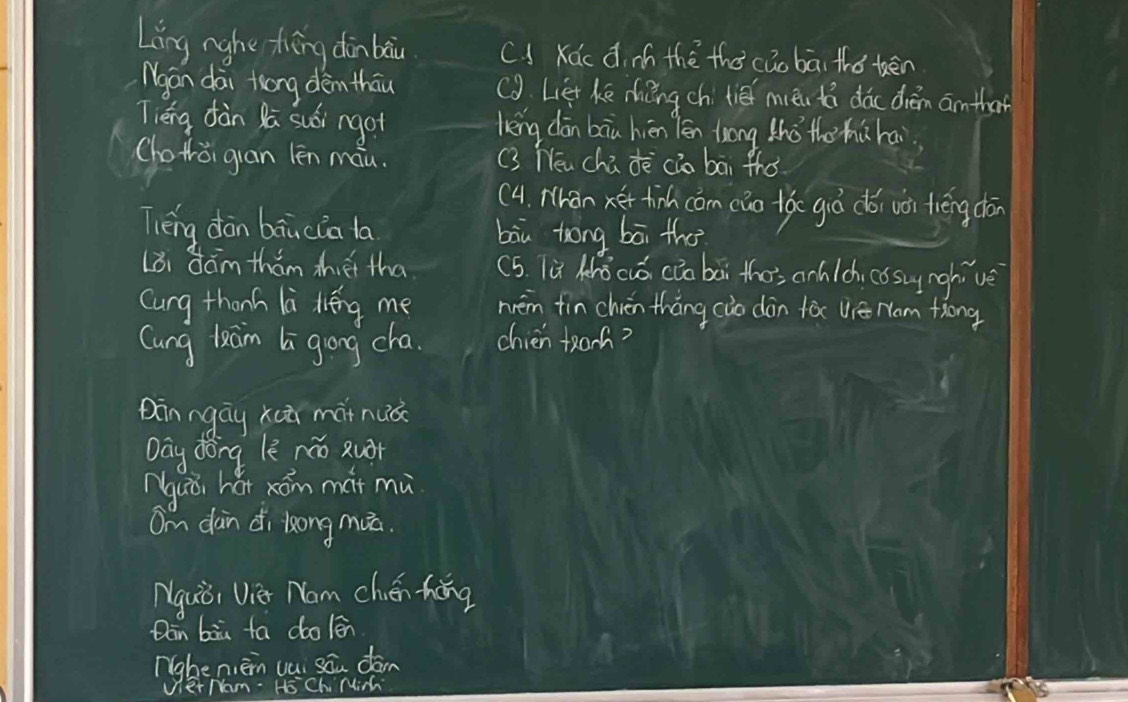 Lắng nghe tiếng đàn bầu
Ngân dài trong đêm thâu
Tiếng đàn là suối ngọt
Cho thời gian lên màu.
Tiếng đàn bầu của ta
Lời đằm thắm thiết tha
Cung thanh là tiếng mẹ
Cung trầm là giọng cha.
Đàn ngày xưa mất nước
Dây đồng lẻ não ruột
Người hát xẩm mắt mù
Ôm đàn đi trong mưa.
Người Việt Nam chiến thắng
Đàn bầu ta dạo lên
Nghe niềm vui sâu đậm
Việt Nam - Hồ Chí Minh
C.1 Xác định thể thơ của bài thơ trên.
C2. Liệt kê những chi tiết miêu tả đặc điểm âm thanh
tiếng đàn bầu hiện lên trong khổ thơ thứ hai.
C3 Nêu chủ đề của bài thơ
C4. Nhận xét tình cảm của tác giả đối với tiếng đàn
bầu trong bài thơ.
C5. Từ khổ cuối của bài thơ, anh/chị có suy nghĩ về
niềm tin chiến thắng của dân tộc Việt Nam trong
chiến tranh?